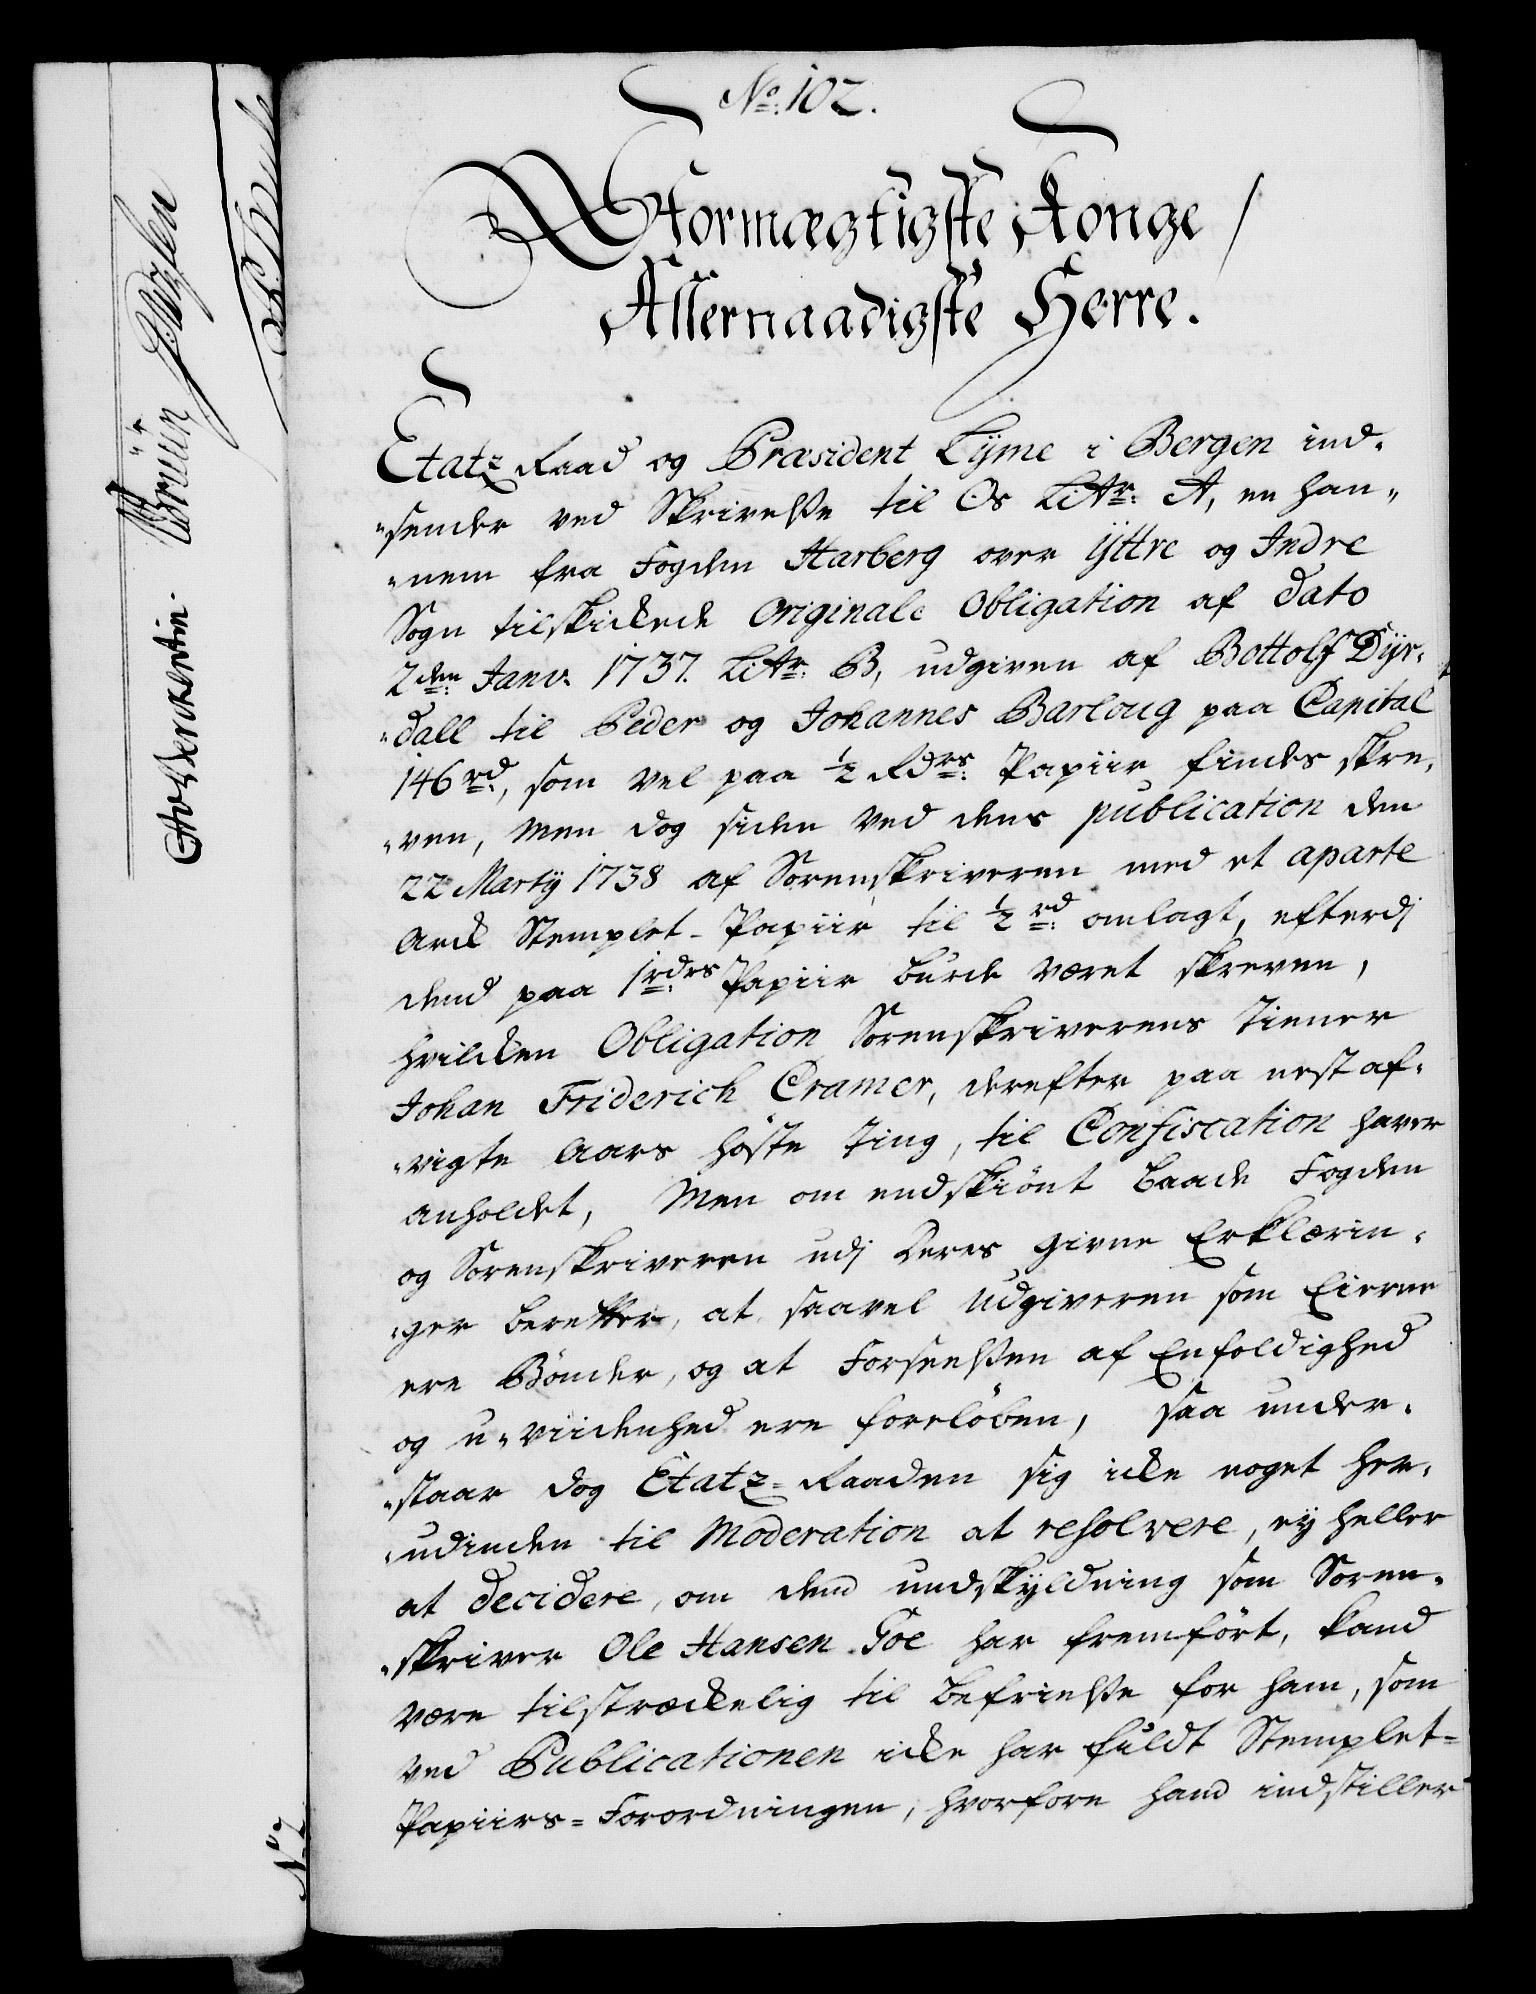 No: 102.
Stormægtigste Konge /
Allernaadigste Herre.
Etatz Raad og Præsident Lÿme i Bergen ind-
"sender ved Skrivelße til Os Litr: A, en han-
"nem fra Fogden Harberg over Ÿttre og Indre
Sogn tilskickede Originale Obligation af Dato
2den: Janv. 1737. Litr: B, udgiven af Bottolf Dÿr-
"dall til Peder og Johannes Barloug paa Capital
146rd:, som vel paa ½ Rdrs: Papiir findes skre-
"ven, men dog siden ved dens publication den
22 Martÿ 1738 af Sorenskriveren med et aparte
Arck Stemplet-Papiir til ½ rd: omlagt, efterdj
dend paa 1rdrs: Papiir burde været skreven,
hvilcken Obligation Sorenskriverens Tiener
Johan Friderich Cramer, derefter paa nest af-
"vigte Aars høste Ting, til Confiscation haver
anholdet, Men om endskiönt baade Fogden
og Sorenskriveren udj deres givne Erklærin-
"ger beretter, at saavel Udgiveren som Eierne
ere Bönder, og at Forseelßen af Enfoldighed
og u-viidenhed ere forelöben, saa under-
"staar dog Etatz-Raaden sig icke noget her-
"udinden til Moderation at resolvere, ey heller
at decidere, om dend undskÿldning som Soren-
"skriver Ole Hansen Toe har fremfört, kand
være tilstræckelig til befrielße for ham, som
ved Publicationen icke har fuldt Stemplet-
Papiirs-Forordningen, hvorfore hand indstiller